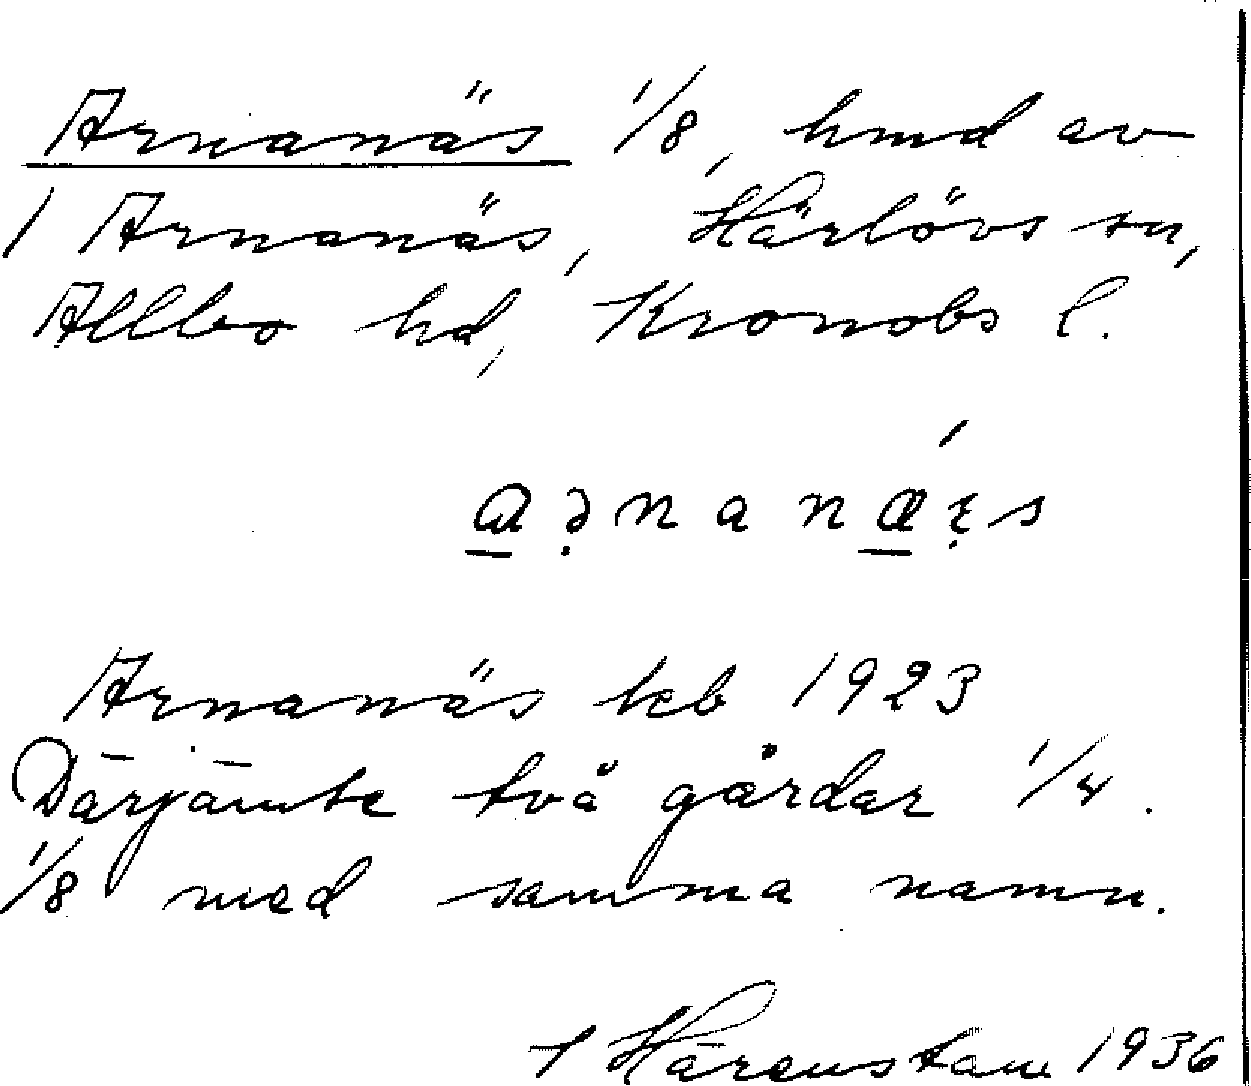 Arnanäs 1/8, hmd av
1 Arnanäs, Härlövs sn,
Allbo hd, Kronobs l.
Arnanäs kb 1923
Därjämte två gårdar 1/4.
1/8 med samma namn.
Härenstam 1936